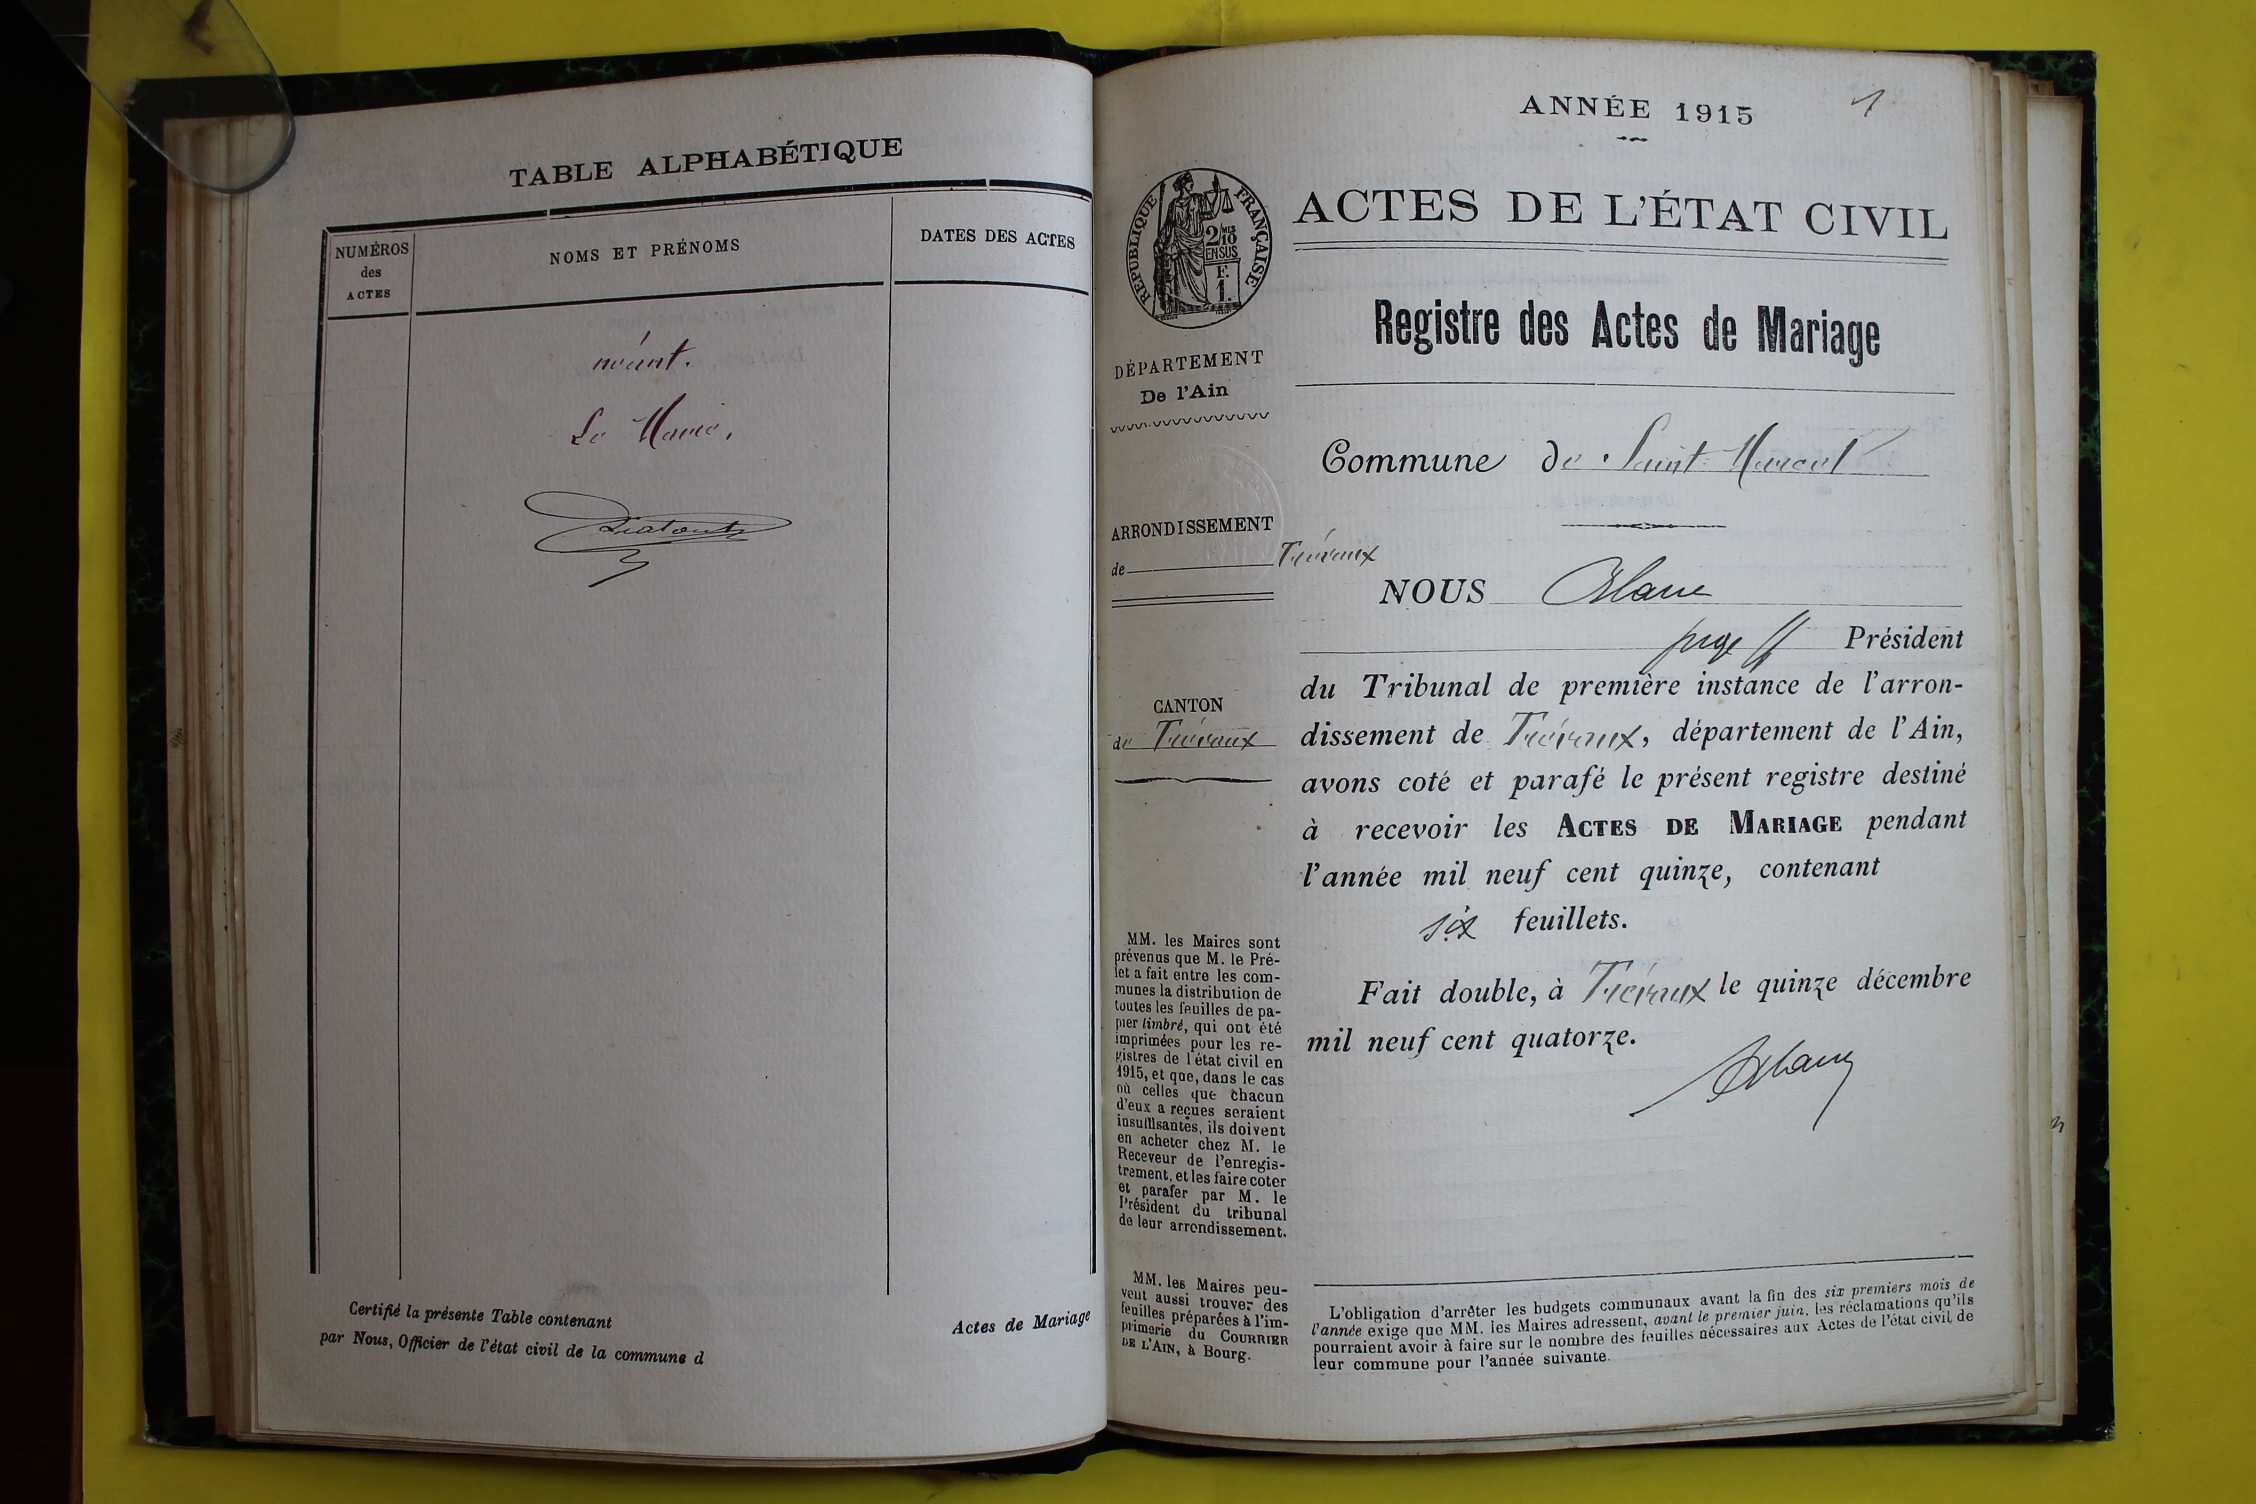 TABLE ALPHABÉTIQUE
NUMÉROS
des
ACTES
NOMS ET PRÉNOMS
DATES DES ACTES
néant.
Le Maire,
Certifié la présente Table contenant
Actes de Mariage
par Nous, Officier de l'état civil de la commune d
ANNÉE 1915
1
RÉPUBLIQUE FRANÇAISE
2/10 MES
EN SUS
F.
1.
ACTES DE L'ÉTAT CIVIL
Registre des Actes de Mariage
DÉPARTEMENT
De l'Ain
Commune de Saint Marcel
ARRONDISSEMENT
de Trévoux
CANTON
de Trévoux
NOUS Blanc
juge ff Président
du Tribunal de première instance de l'arron-
dissement de Trévoux, département de l'Ain,
avons coté et parafé le présent registre destiné
à recevoir les ACTES DE MARIAGE pendant
l'année mil neuf cent quinze, contenant
six feuillets.
Fait double, à Trévoux le quinze décembre
mil neuf cent quatorze.
Blanc
MM. les Maires sont
prévenus que M. le Pré-
fet a fait entre les com-
munes la distribution de
toutes les feuilles de pa-
pier timbré, qui ont été
imprimées pour les re-
gistres de l'état civil en
1915, et que, dans le cas
où celles que chacun
d'eux a reçues seraient
insuffisantes, ils doivent
en acheter chez M. le
Receveur de l'enregis-
trement, et les faire coter
et parafer par M. le
Président du tribunal
de leur arrondissement.
MM. les Maires peu-
vent aussi trouver des
feuilles préparées à l'im-
primerie du COURRIER
DE L'AIN, à Bourg.
L'obligation d'arrêter les budgets communaux avant la fin des six premiers mois de
l'année exige que MM. les Maires adressent, avant le premier juin, les réclamations qu'ils
pourraient avoir à faire sur le nombre des feuilles nécessaires aux Actes de l'état civil de
leur commune pour l'année suivante.